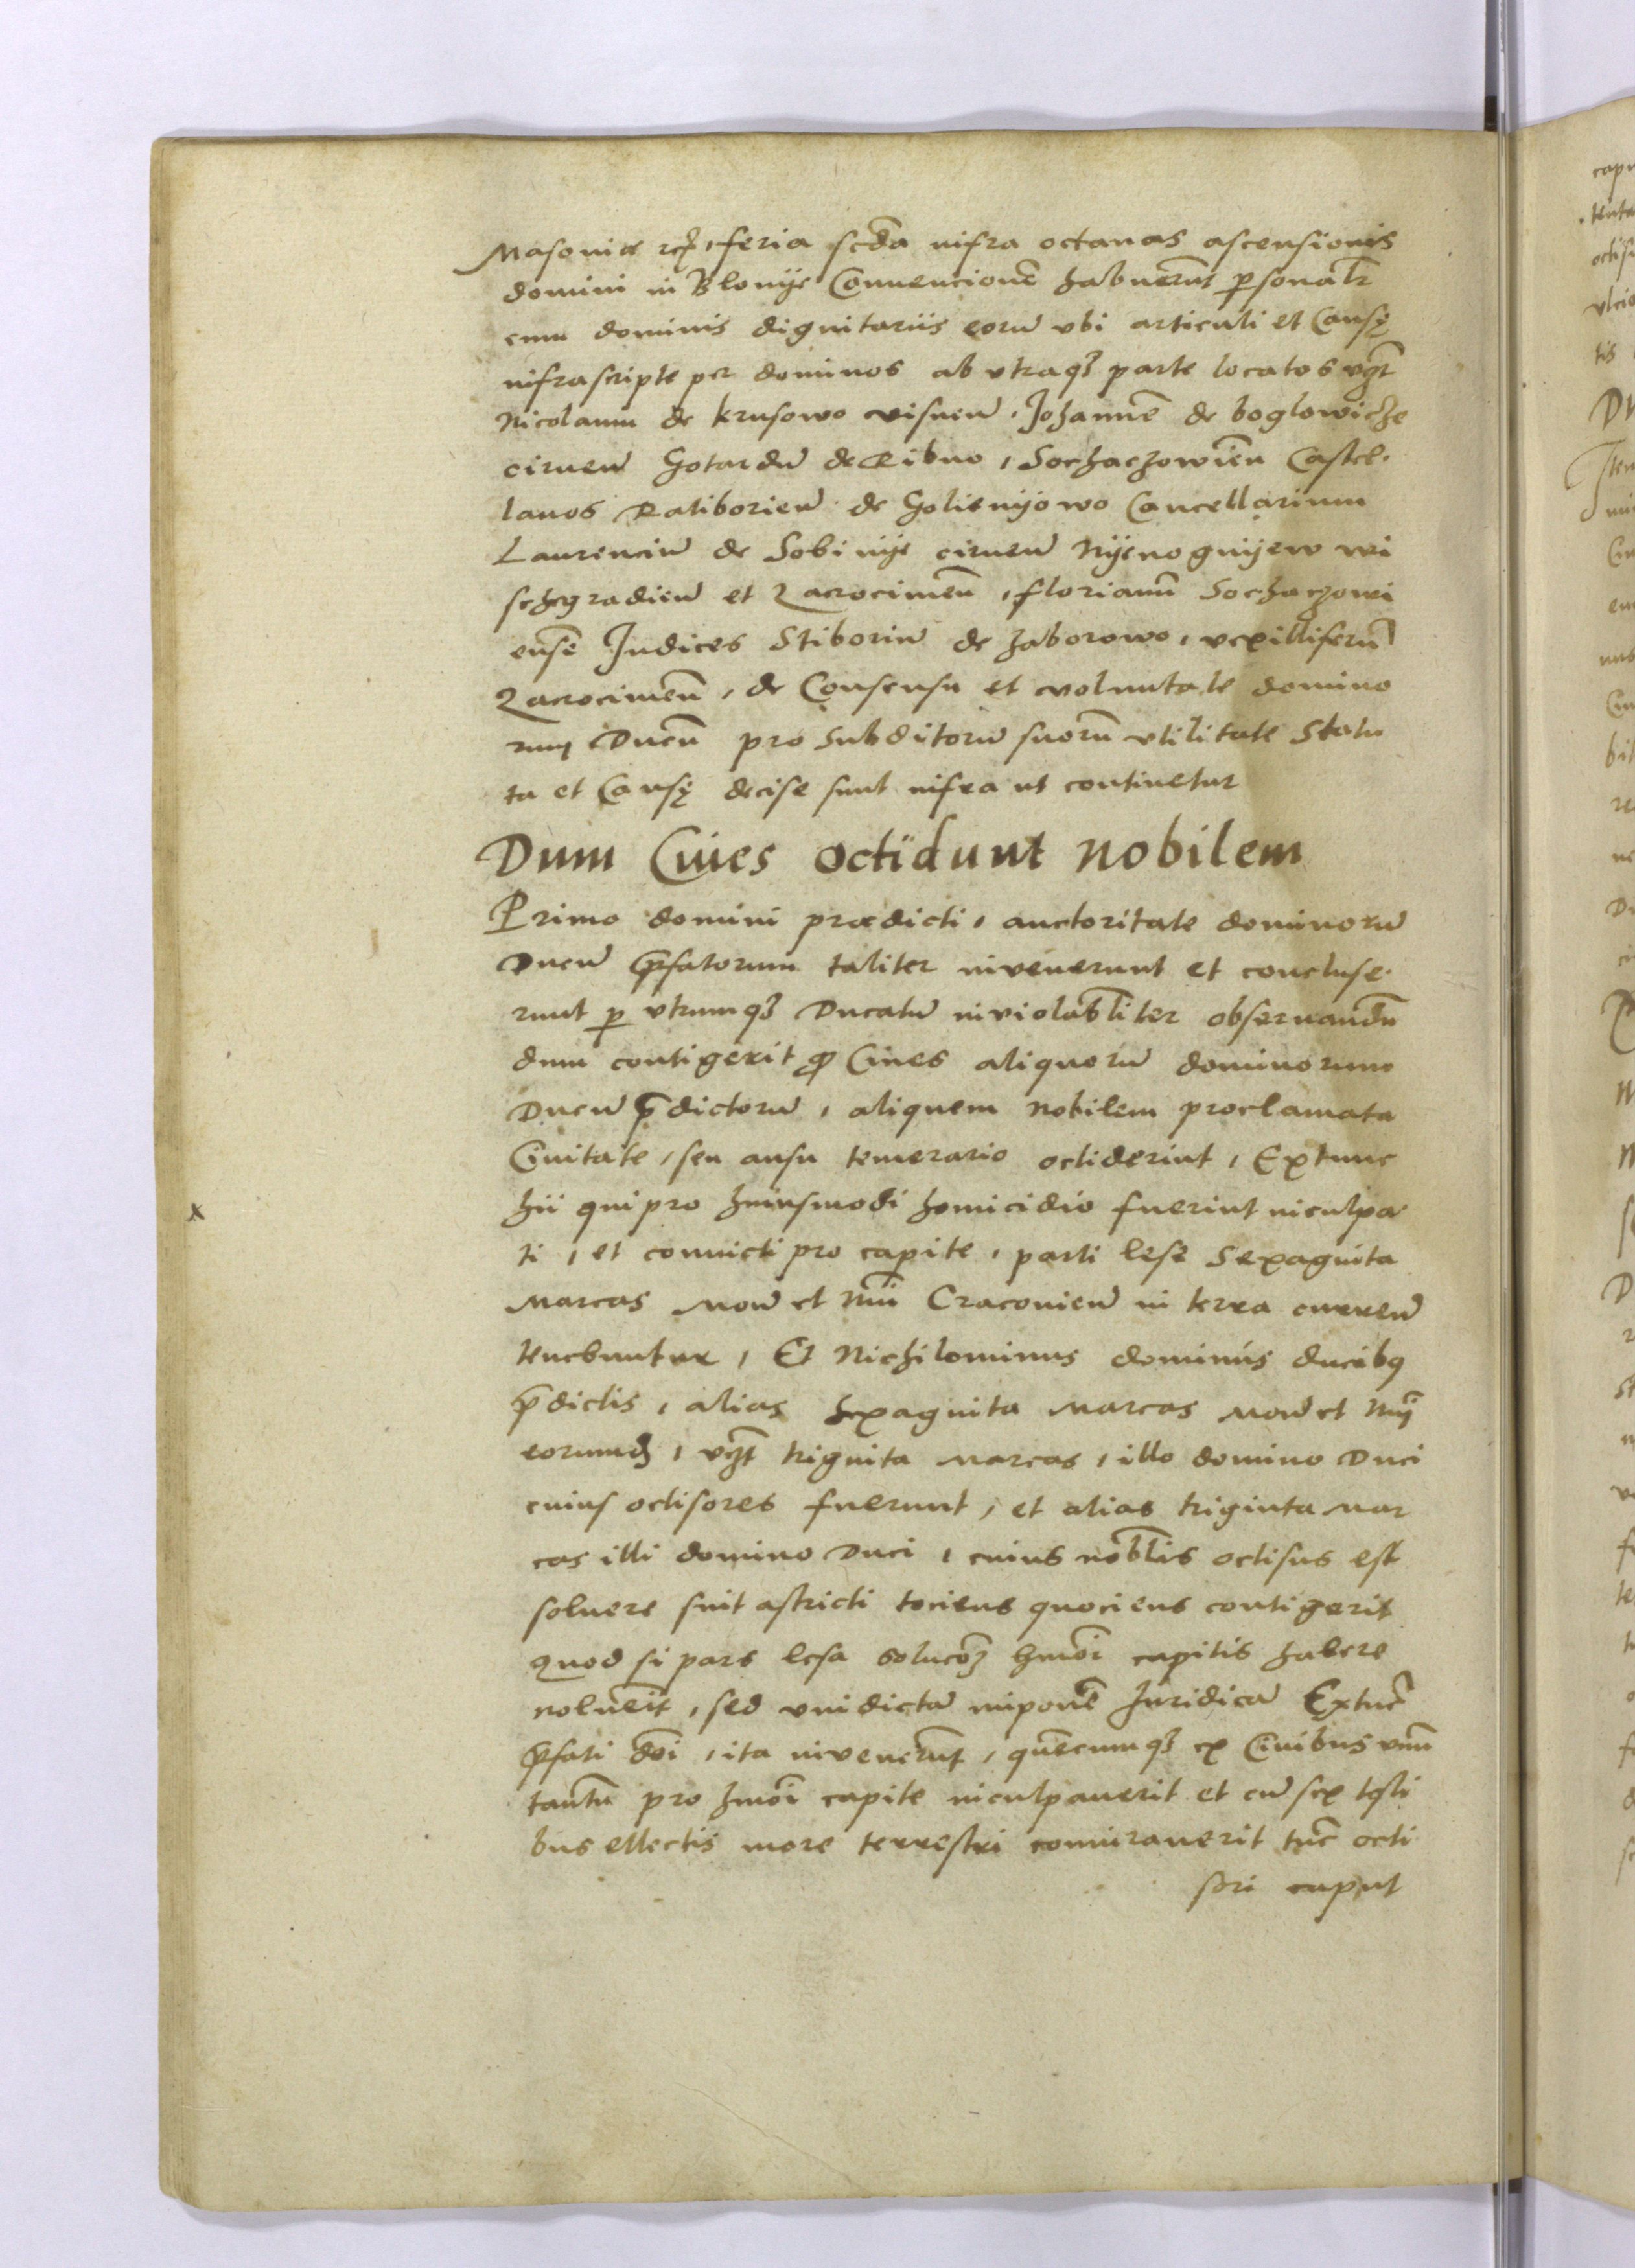 Masoviæ etc, feria scd̄a infra octauas ascensionis
domini in Blonije Conuencionē habuerūt ꝑsonalr̄
cum dominis dignitariis eorū vbi articuli et Causę
infrascripte per dominos ab vtraqꝫ parte locatos vꝫt
Nicolaum de krusowo visneñ, Johannē de boglowicze
cirneñ Gotardū de Ribno, Sochaczowień Castel-
lanos Ratiborieñ de Golienijowo Cancellarium
Laurenciū de Sobinije cirneñ Nijenognijew wi
schegradieñ et Zacrocimeñ, florianū Sochaczowi
ensē Judices Stiboriū de Zaborowo, vexilliferū
Zacrocimeñ, de Consensu et voluntate domino
rum Ducū pro subditorū suorū vtilitate Statu
ta et Causę decise sunt infra ut continetur
Dum Ciues occidunt nobilem
Primo domini prædicti, auctoritate dominorū
Ducū p̄fatorum taliter inuenerunt et concluse-
runt ꝑ vtrumqꝫ Ducatū inuiolab̄liter obseruandū
dum contigerit ꝙ Ciues aliquorū dominorum
Ducū p̄dictorū, aliquem nobilem proclamata
Ciuitate, seu ausu temerario occiderint, Extunc
hii qui pro huiusmodi homicidio fuerint inculpa
ti, et conuicti pro capite, parti lese Sexaginta
Marcas Moñ et Nūi Craconieñ in terra curreñ
tenebuntur, Et Nichilominus dominis ducibꝰ
p̄dictis, alias Sexaginta Marcas Moñ et Nūi
eorumdꝫ, vꝫt triginta Marcas, illo domino Duci
cuius occisores fuerunt, et alias triginta Mar
cas illi domino Duci, cuius nob̄lis occisus est
soluere sint astricti tociens quociens contigerit
Quod si pars lesa solucōꝫ hmōi capitis habere
noluerit, sed vindictā imponē Juridicā Extūc
p̄fati dōi, ita inuenerūt, quēcumqꝫ ex Ciuibus vnū
tantū pro hmōi capite inculpauerit et cū sex testi
bus ellectis more terrestri coniurauerit tūc occi
sori caput
x